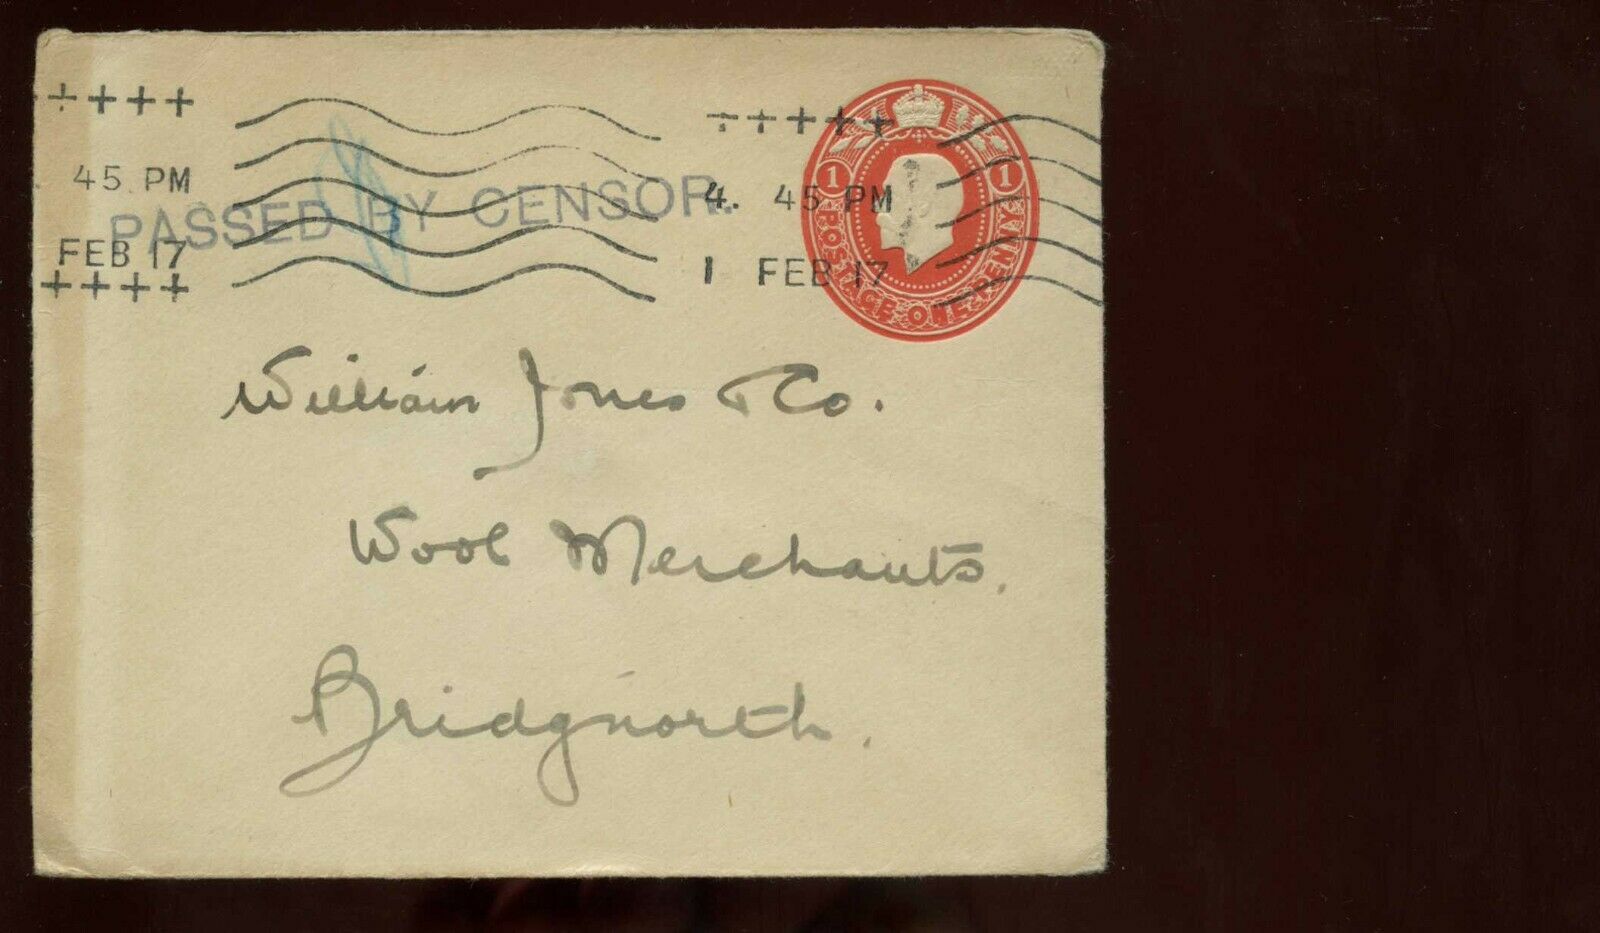 ++++ +++++
45 PM 4. 45 PM
PASSED BY CENSOR.
FEB 17 1 FEB 17
++++
1 1
POSTAGE ONE PENNY
William Jones & Co.
Wool Merchants.
Bridgnorth.